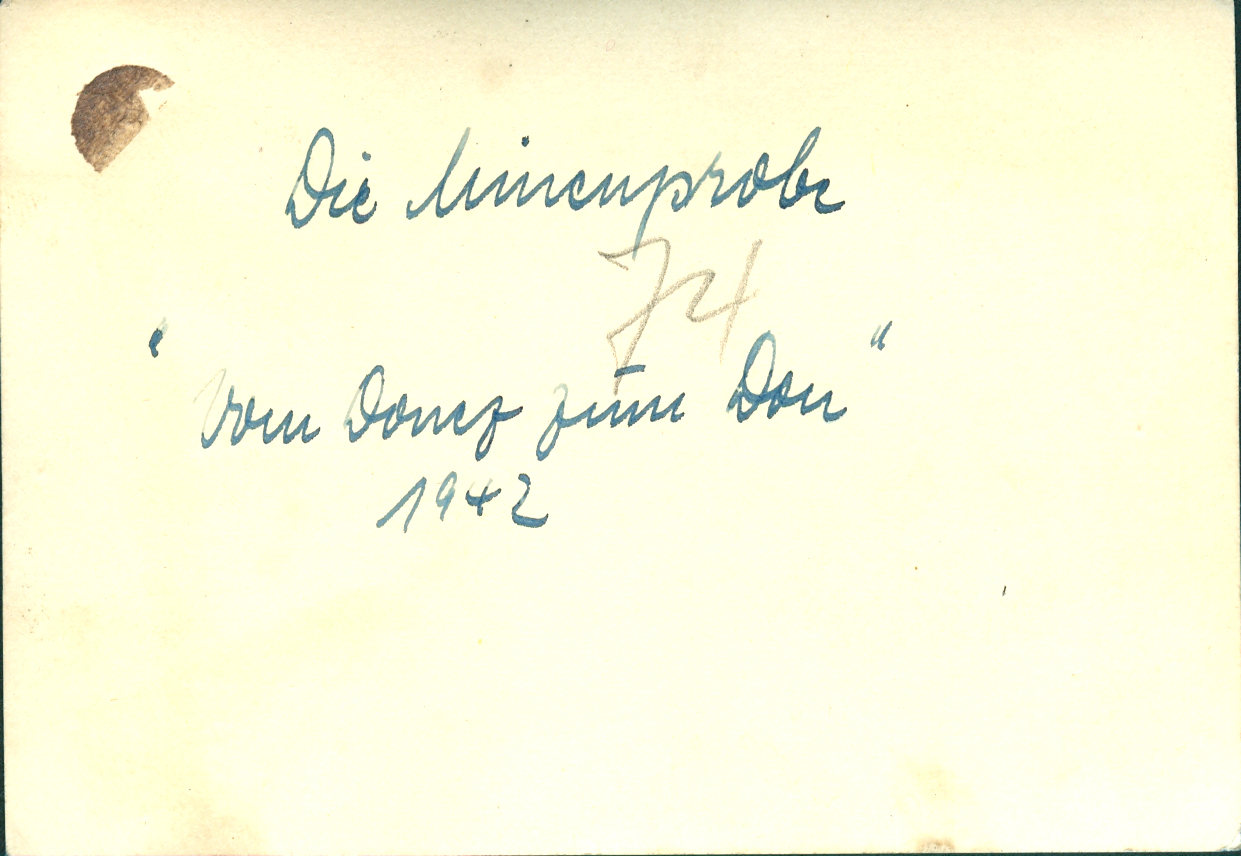 Die Minenprobe
74
"Vom Donez zum Don"
1942